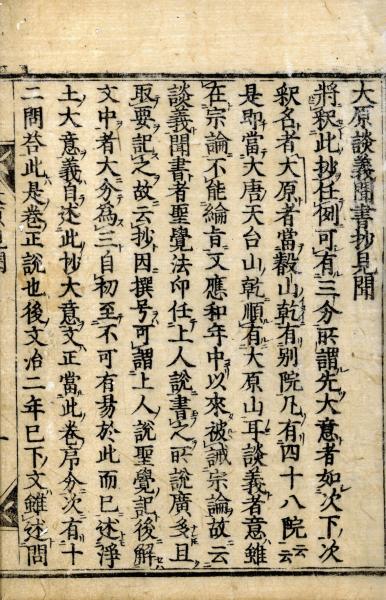 大原談義聞書抄見聞
將釈此抄任例可有三分所謂先大意者如次下次
釈名者大原者當叡山乾有別院凡有四十八院云云
是即當大唐天台山乾順有大原山耳談義者意雖
在宗論不能綸言文應和年中以來被誡宗論故云
談義聞書者聖覺法印任上人說書之所說廣多且
取要記之故云抄因撰号可謂上人說聖覺記後解
文中者大分為三自初至不可有易於此而已述淨
土大意義自述此抄大意文正當此卷序分次有十
二問荅此是卷正說也後文治二年已下文雖述問